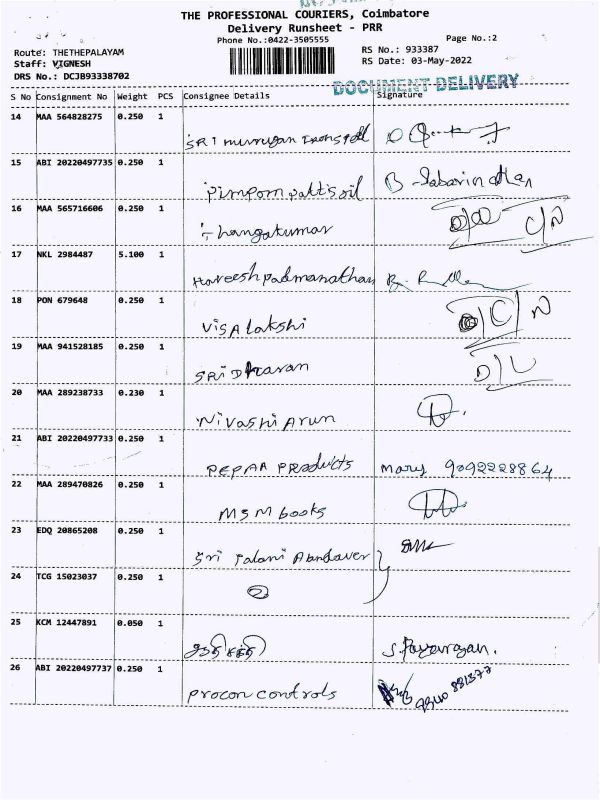 THE PROFESSIONAL COURIERS, Coimbatore
Delivery Runsheet - PRR
Phone No.:0422-3505555
Page No.:2
Route: THETHEPALAYAM
RS No.: 933387
Staff: VIGNESH
RS Date: 03-May-2022
DRS No.: DCJB93338702
DOCUMENT DELIVERY
S No Consignment No Weight PCS Consignee Details Signature
14 MAA 564828275 0.250 1
SRI murugan
15 ABI 20220497735 0.250 1
B. Sabarinathan
16 MAA 565716606 0.250 1
Thangakumar
17 NKL 2984487 5.100 1
Hareesh Padmanathan
18 PON 679648 0.250 1
VISALakshi
19 MAA 941528185 0.250 1
SRIDharan D/L
20 MAA 289238733 0.230 1
Nivashi Arun
21 ABI 20220497733 0.250 1
PEPAA PRODUCTS Mary 9092228864
22 MAA 289470826 0.250 1
MSM books
23 EDQ 20865208 0.250 1
Sri Palani
24 TCG 15023037 0.250 1
2
25 KCM 12447891 0.050 1
26 ABI 20220497737 0.250 1
Procon controls